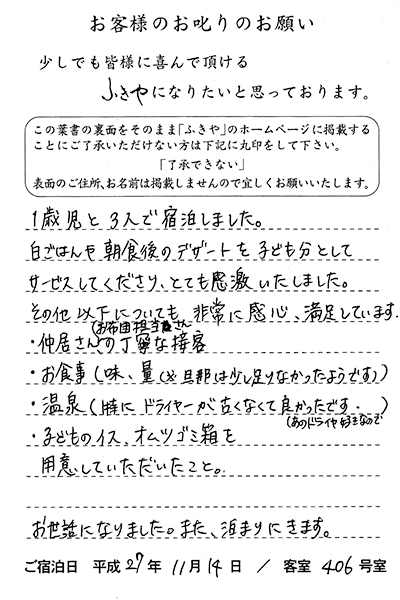 お客様のお叱りのお願い
少しでも皆様に喜んで頂ける
ふきやになりたいと思っております。
この葉書の裏面をそのまま「ふきや」のホームページに掲載する
ことにご了承いただけない方は下記に丸印をして下さい。
「了承できない」
表面のご住所、お名前は掲載しませんので宜しくお願いいたします。
1歳児と3人で宿泊しました。
白ごはんや朝食後のデザートを子ども分として
サービスしてくださり、とても感激いたしました。
その他以下についても、非常に感心、満足しています。
(お布団担当さん)
・仲居さんの丁寧な接客
・お食事(味、量(※旦那は少し足りなかったようです))
・温泉(特にドライヤーが古くなくて良かったです・)
(あのドライヤ好きなので
・子どものイス、オムツゴミ箱を
用意していただいたこと。
お世話になりました。また、泊まりにきます。
ご宿泊日 平成27年11月14日 / 客室 406号室